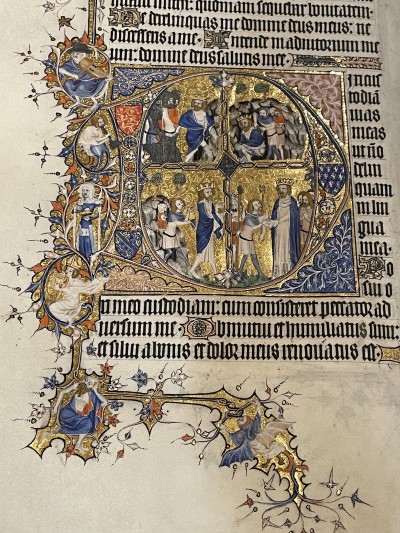 michi: quoniam sequebar bonitatem
Ne derelinquas me domine deus meus: ne
discesseris a me. Intende in adiutorium me
um: domine deus salutis mee.
ixi cus
todiā
uias
meas
ut nō
delin
quam
in lin
gua
mea. Po
sui o
ri meo custodiam: cum consisteret peccator ad
uersum me. Obmutui et humiliatus sum:
et silui a bonis et dolor meus renouatus est.